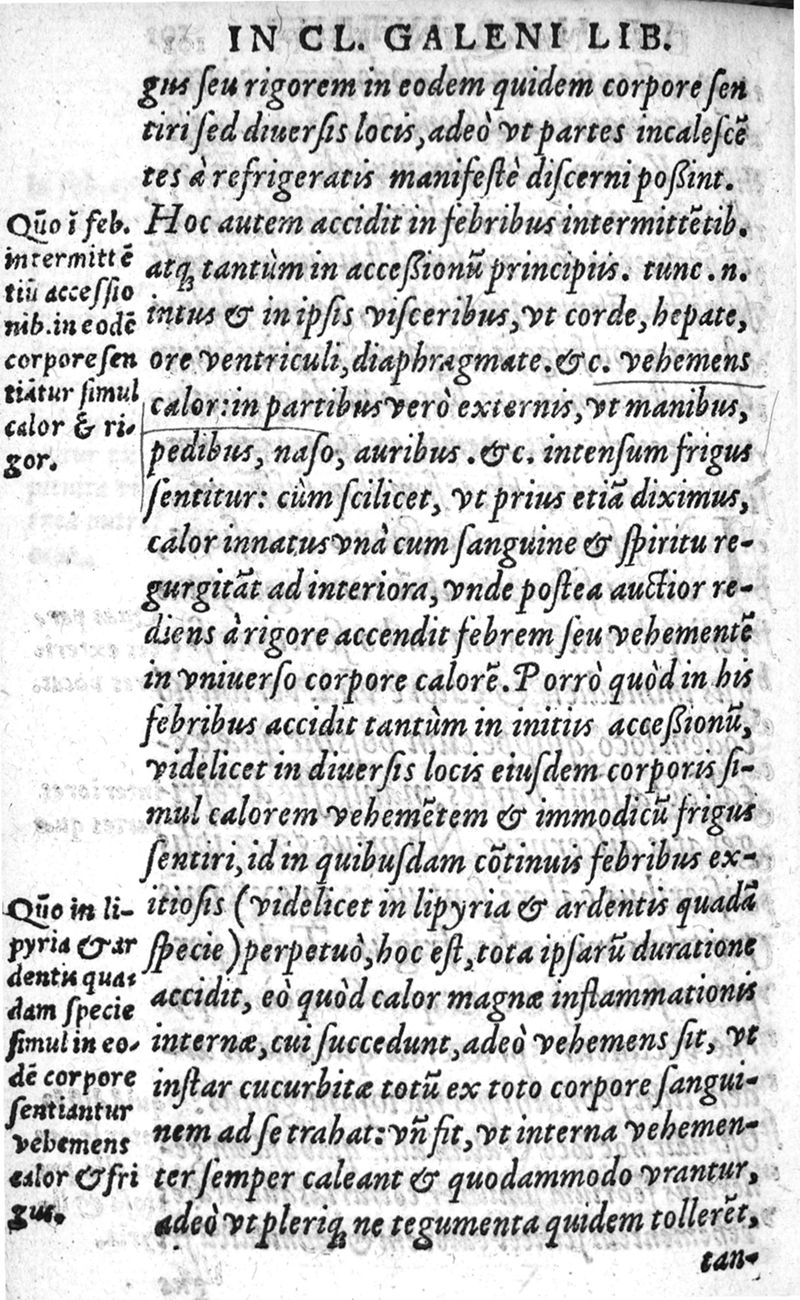 IN CL. GALENI LIB.
gus ſeu rigorem in eodem quidem corpore ſen
tiri ſed diuerſis locis, adeò vt partes incaleſcẽ
tes à refrigeratis manifeſtè diſcerni poßint.
Hoc autem accidit in febribus intermittẽtib.
atq́ tantùm in acceßionũ principiis. tunc .n.
intus & in ipſis viſceribus, vt corde, hepate,
ore ventriculi, diaphragmate. &c. vehemens
calor: in partibus verò externis, vt manibus,
pedibus, naſo, auribus . &c. intenſum frigus
ſentitur: cùm ſcilicet, vt prius etiã diximus,
calor innatus vnà cum ſanguine & ſpiritu re-
gurgitãt ad interiora, vnde poſtea auctior re-
diens à rigore accendit febrem ſeu vehementẽ
in vniuerſo corpore calorẽ. Porrò quòd in his
febribus accidit tantùm in initiis acceßionũ,
videlicet in diuerſis locis eiuſdem corporis ſi-
mul calorem vehemẽtem & immodicũ frigus
ſentiri, id in quibuſdam cõtinuis febribus ex-
itioſis (videlicet in lipyria & ardentis quadã
ſpecie) perpetuò, hoc eſt, tota ipſarũ duratione
accidit, eò quòd calor magnæ inflammationis
internæ, cui ſuccedunt, adeò vehemens ſit, vt
inſtar cucurbitæ totũ ex toto corpore ſangui-
nem ad ſe trahat: vñ fit, vt interna vehemen-
ter ſemper caleant & quodammodo vrantur,
adeò vt pleriq́ ne tegumenta quidem tollerẽt,
tan-
Quõ ĩ feb.
intermittẽ
tiũ acceſſio
nib. in eodẽ
corpore ſen
tiãtur ſimul
calor & ri-
gor.
Quõ in li-
pyria & ar
dentis qua-
dam ſpecie
ſimul in eo-
dẽ corpore
ſentiantur
vehemens
calor & fri
gus.